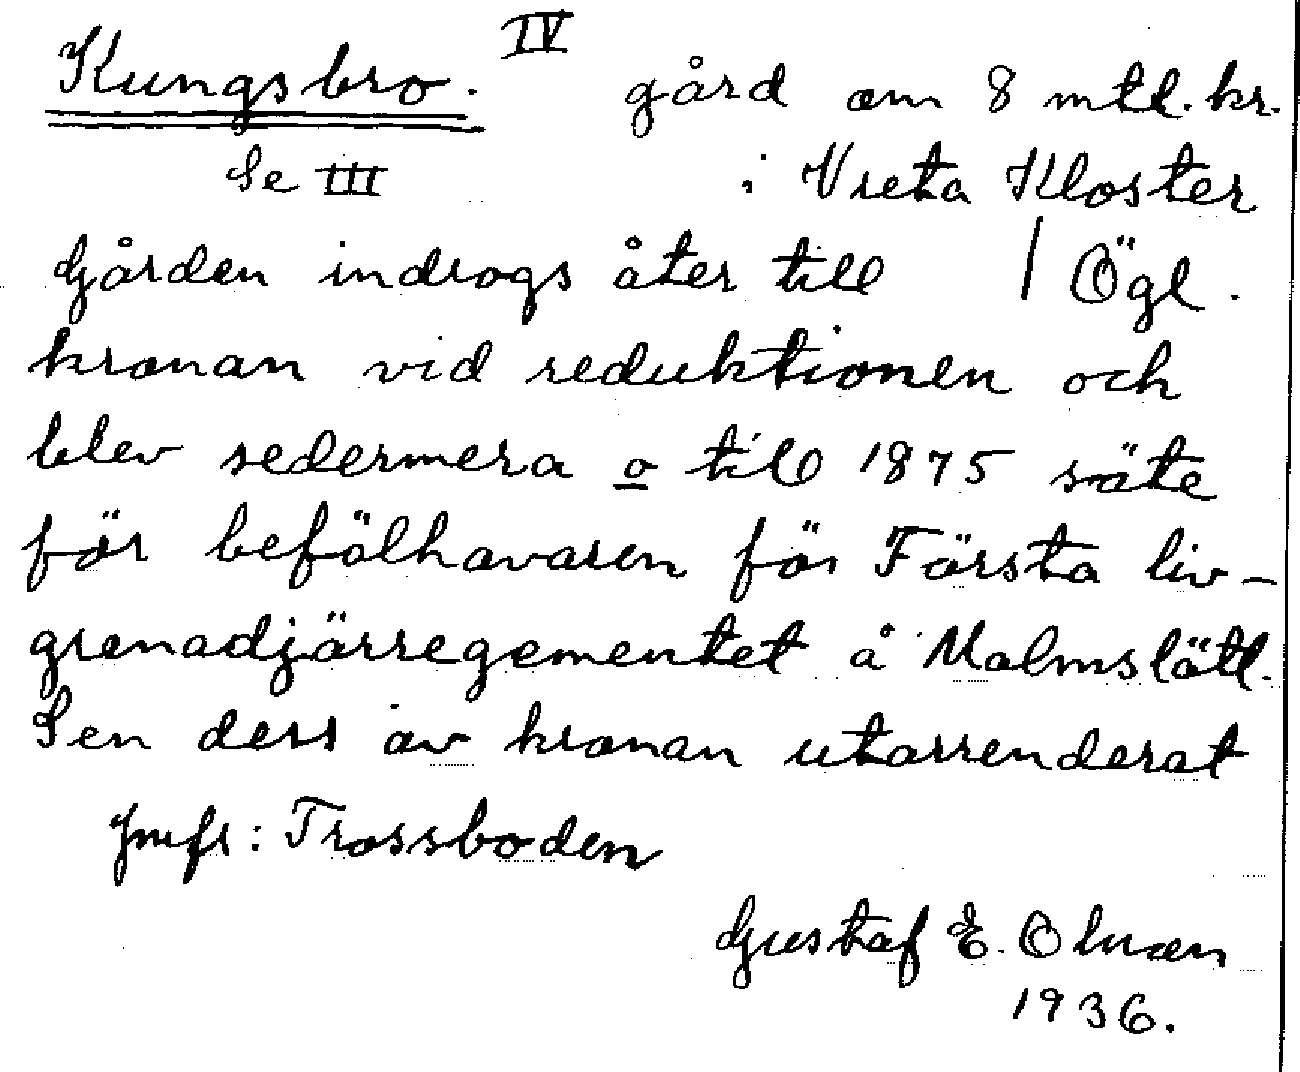 Kungsbro. IV gård om 8 mtl. kr.
Se III i Vreta Kloster
Gården indrogs åter till / Ögl.
kronan vid reduktionen och
blev sedermera o till 1875 säte
för befälhavaren för Första liv-
grenadjärregementet å Malmslätt.
Sen dess av kronan utarrenderat
Jmfr: Trossboden
Gustaf E.
1936.